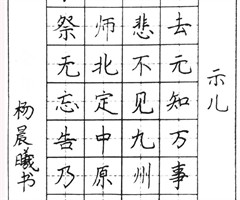 示儿
去元知万事
悲不见九州
师北定中原
祭无忘告乃
杨晨曦书